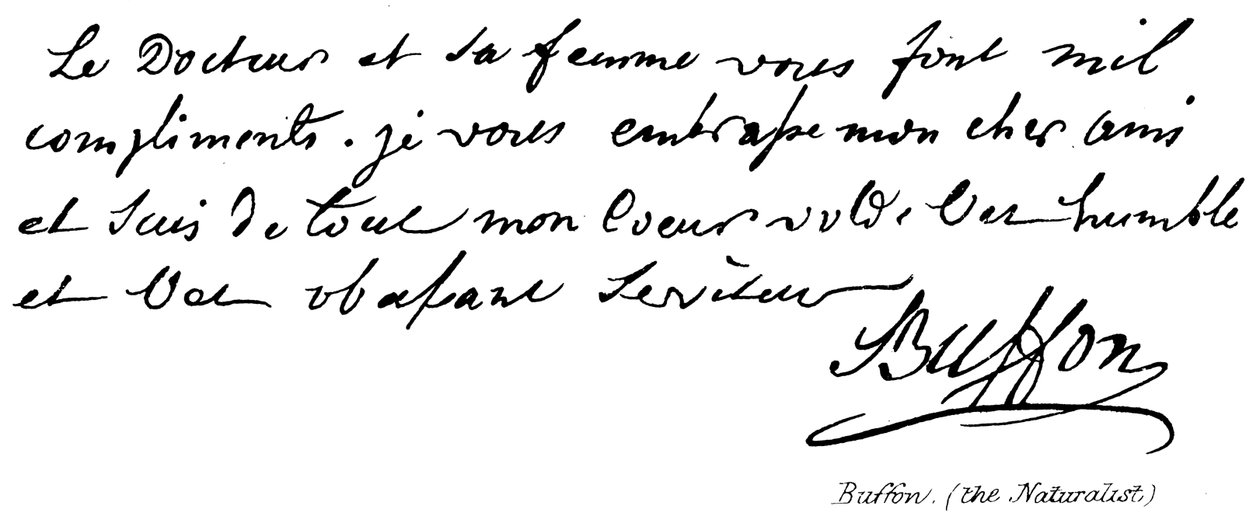 Le Docteur et sa femme vous font mil
compliments. je vous embrasse mon cher amis
et suis de tout mon Coeur humble
et obeissant Serviteur
Buffon
Buffon. (the Naturalist)